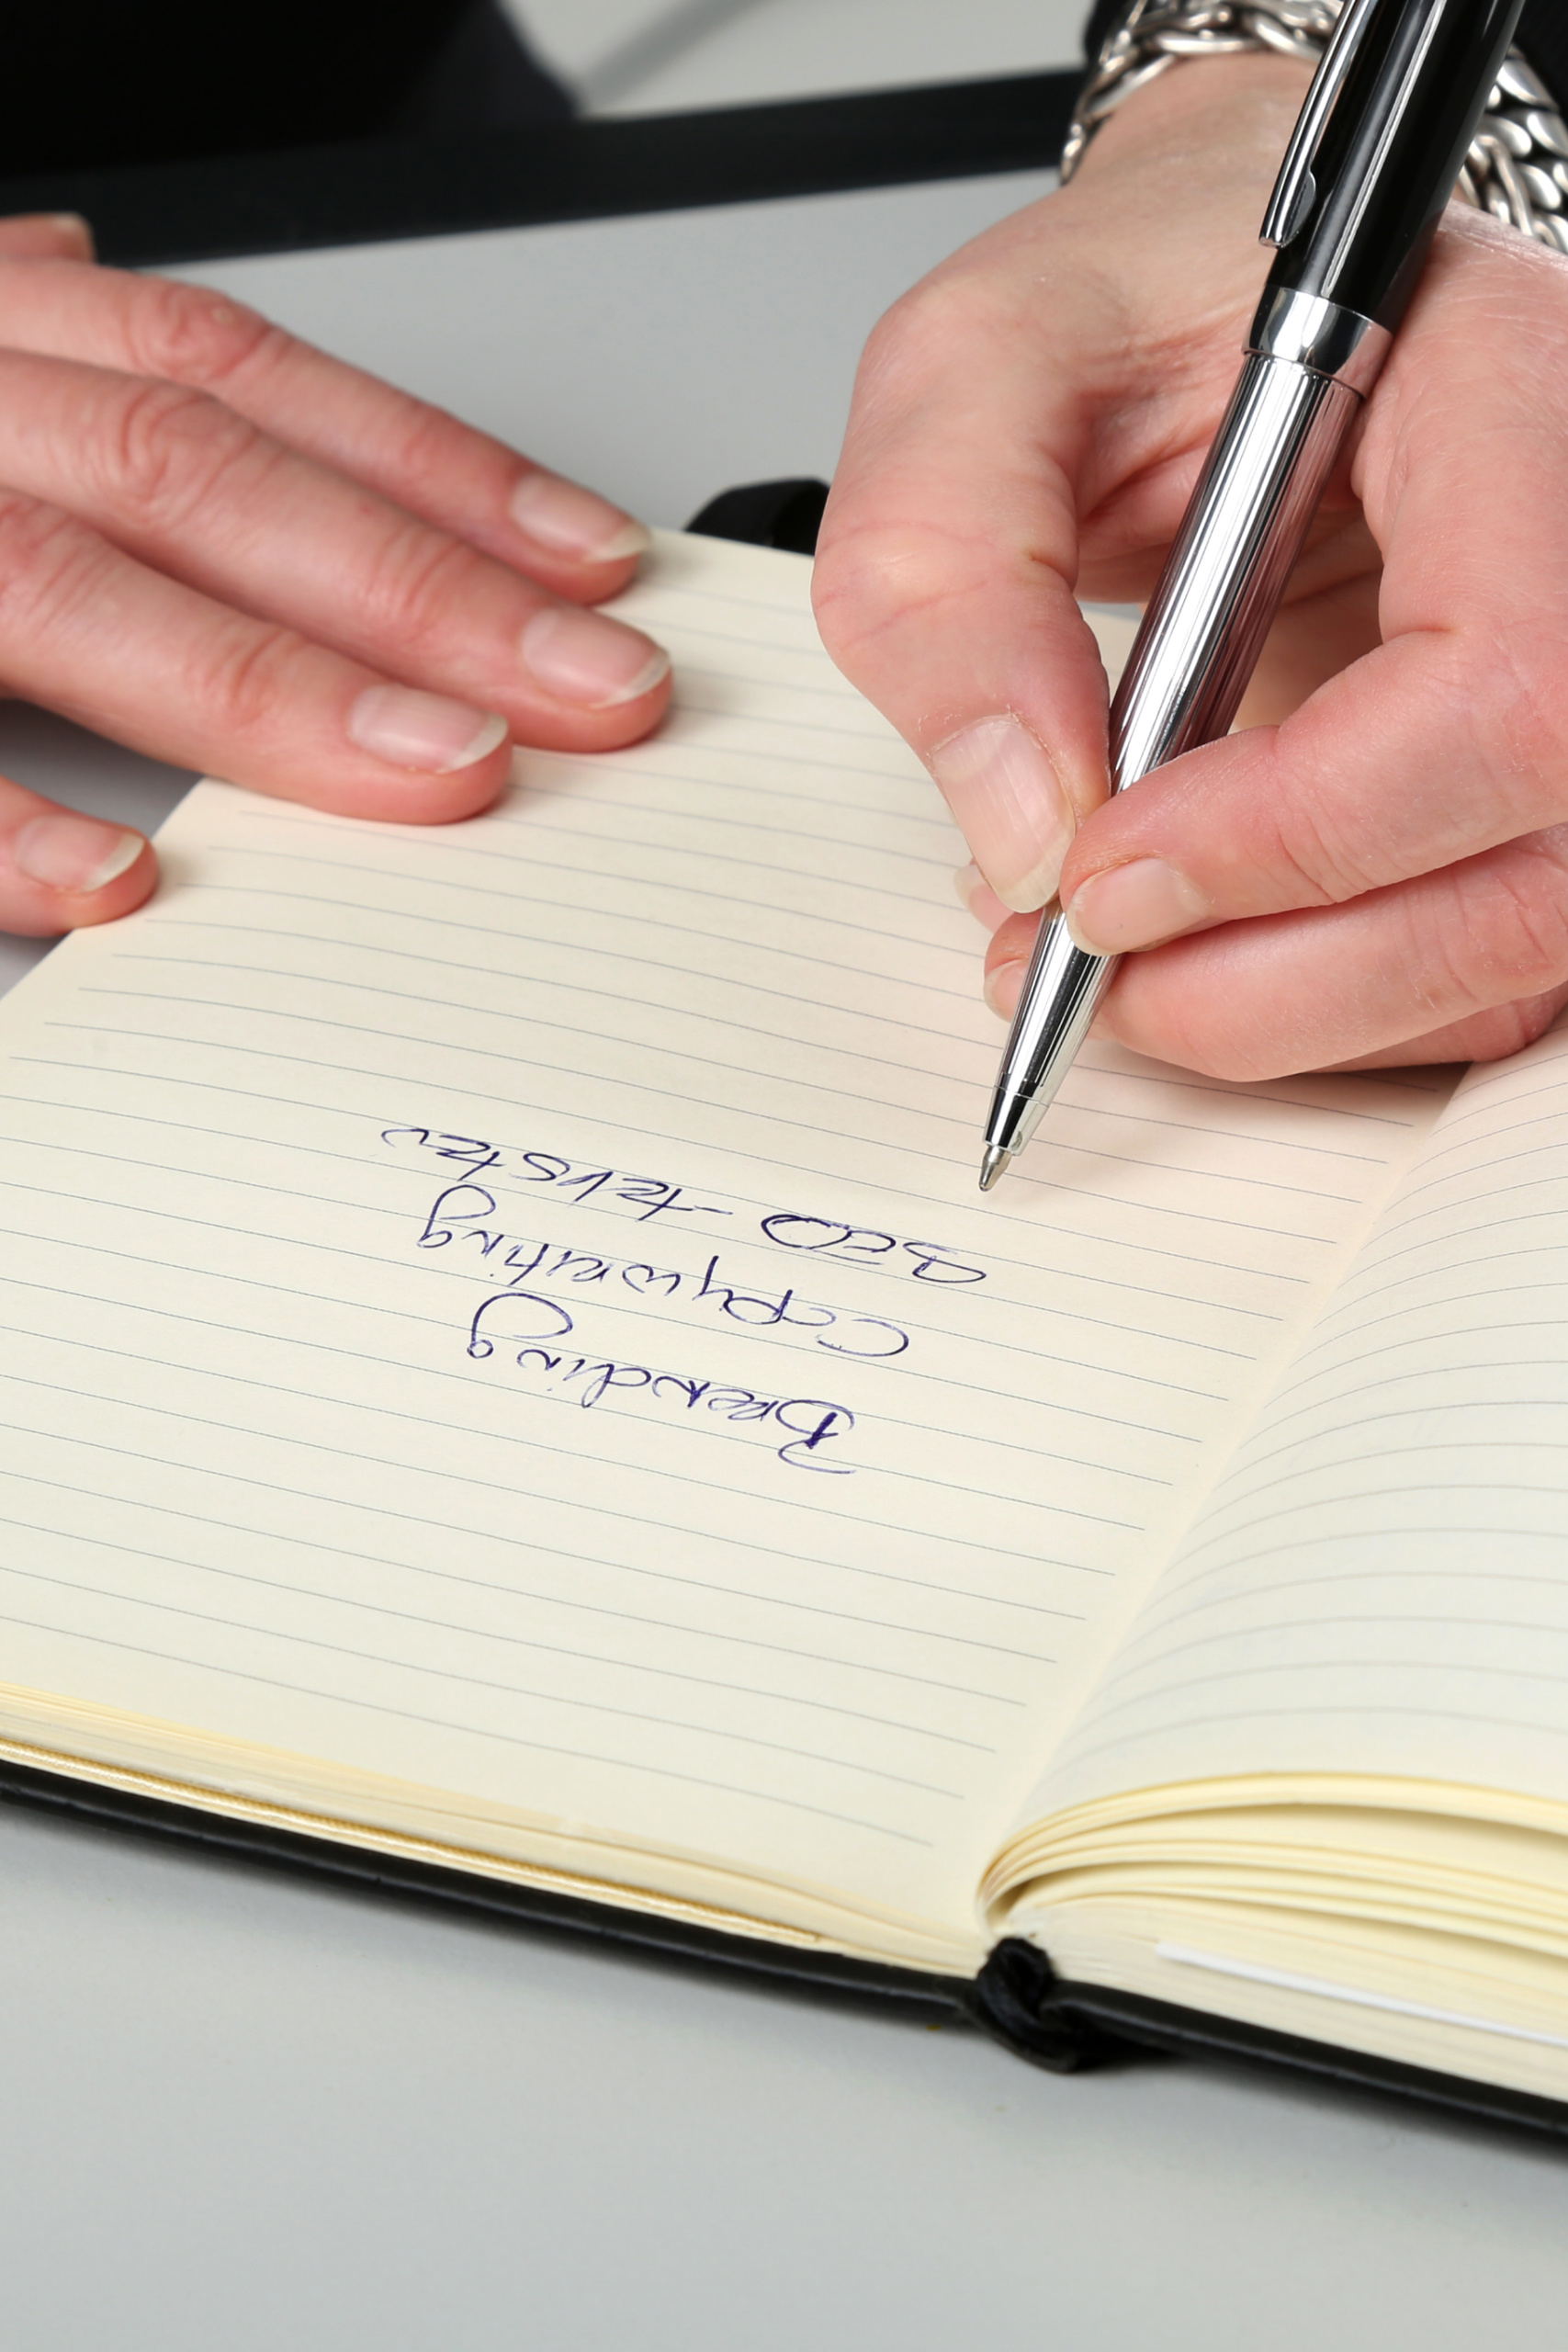 Branding
Copywriting
SEO-teksten